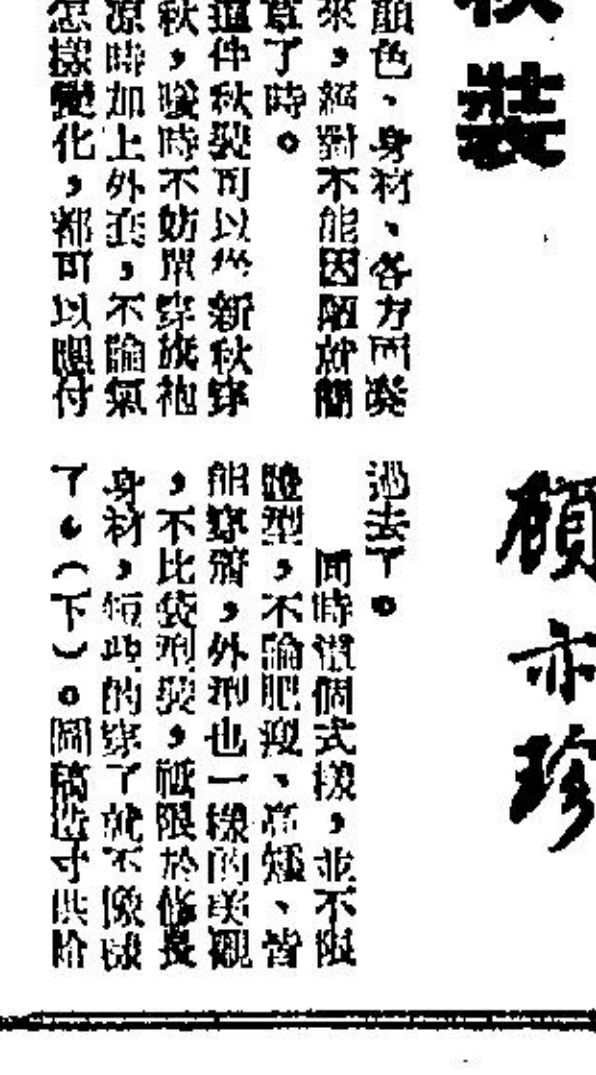 秋裝
顧亦珍
顏色、身材、各方面發
來，絕對不能因陋就簡
算了時。
這件秋裝可以從新秋穿
秋，暖時不妨單穿旗袍
涼時加上外套，不論氣
怎樣變化，都可以應付
過去了。
同時這個式樣，並不限
體型，不論肥瘦、高矮、皆
能穿着，外型也一樣的美觀
，不比袋型裝，祇限於修長
身材，短些的穿了就不像樣
了。（下）。圖稿尺寸供給